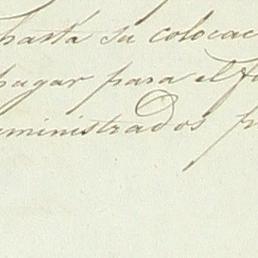 hasta su colocac
pagar para el
uministrados p